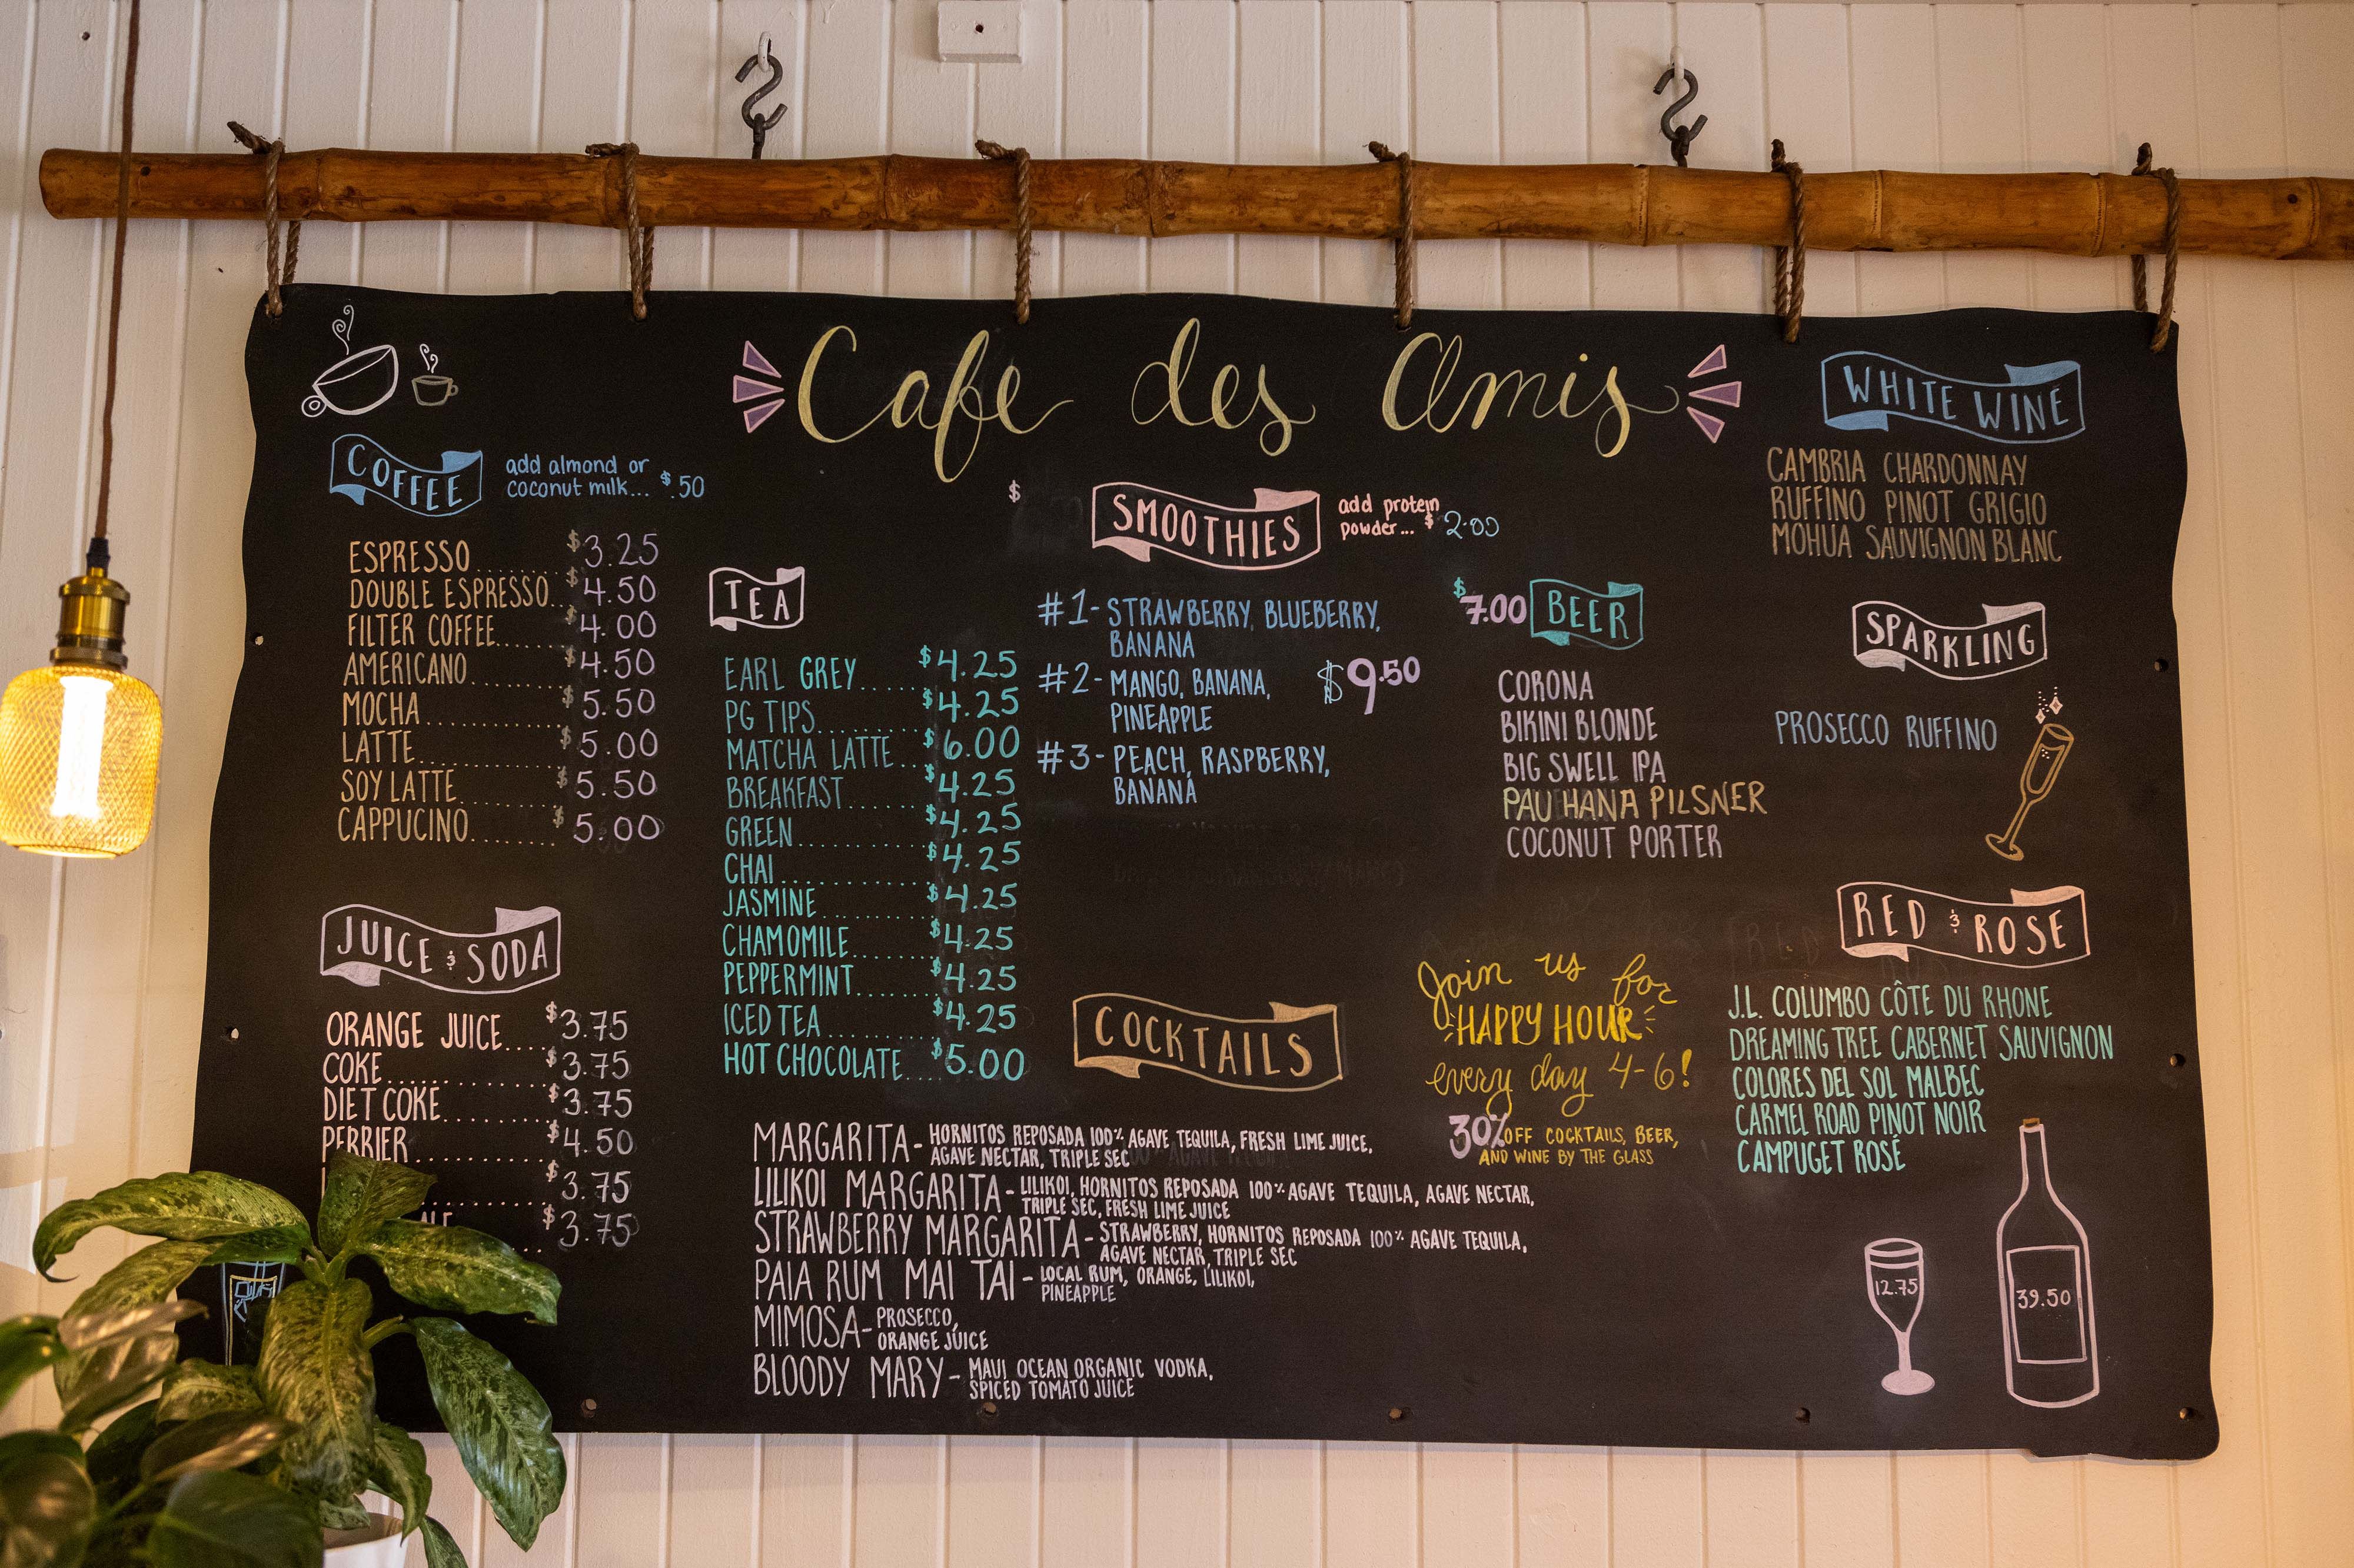 Cafe des Amis
COFFEE
add almond or
coconut milk... $.50
ESPRESSO........ $3.25
DOUBLE ESPRESSO.. $4.50
FILTER COFFEE...... $4.00
AMERICANO......... $4.50
MOCHA............ $5.50
LATTE............. $5.00
SOY LATTE......... $5.50
CAPPUCINO........ $5.00
JUICE & SODA
ORANGE JUICE.... $3.75
COKE............ $3.75
DIET COKE........ $3.75
PERRIER.......... $4.50
$3.75
$3.75
TEA
EARL GREY...... $4.25
PG TIPS......... $4.25
MATCHA LATTE... $6.00
BREAKFAST....... $4.25
GREEN........... $4.25
CHAI............ $4.25
JASMINE......... $4.25
CHAMOMILE....... $4.25
PEPPERMINT...... $4.25
ICED TEA......... $4.25
HOT CHOCOLATE.... $5.00
$
SMOOTHIES
add protein
powder... $2.00
#1- STRAWBERRY, BLUEBERRY,
BANANA
#2- MANGO, BANANA,
PINEAPPLE
$9.50
#3- PEACH, RASPBERRY,
BANANA
$7.00 BEER
CORONA
BIKINI BLONDE
BIG SWELL IPA
PAU HANA PILSNER
COCONUT PORTER
COCKTAILS
MARGARITA- HORNITOS REPOSADA 100% AGAVE TEQUILA, FRESH LIME JUICE,
AGAVE NECTAR, TRIPLE SEC
LILIKOI MARGARITA- LILIKOI, HORNITOS REPOSADA 100% AGAVE TEQUILA, AGAVE NECTAR,
TRIPLE SEC, FRESH LIME JUICE
STRAWBERRY MARGARITA- STRAWBERRY, HORNITOS REPOSADA 100% AGAVE TEQUILA,
AGAVE NECTAR, TRIPLE SEC
PAIA RUM MAI TAI- LOCAL RUM, ORANGE, LILIKOI,
PINEAPPLE
MIMOSA- PROSECCO,
ORANGE JUICE
BLOODY MARY- MAUI OCEAN ORGANIC VODKA,
SPICED TOMATO JUICE
Join us for
HAPPY HOUR
every day 4-6!
30% OFF COCKTAILS, BEER,
AND WINE BY THE GLASS
WHITE WINE
CAMBRIA CHARDONNAY
RUFFINO PINOT GRIGIO
MOHUA SAUVIGNON BLANC
SPARKLING
PROSECCO RUFFINO
RED & ROSE
J.L. COLUMBO CÔTE DU RHONE
DREAMING TREE CABERNET SAUVIGNON
COLORES DEL SOL MALBEC
CARMEL ROAD PINOT NOIR
CAMPUGET ROSÉ
12.75
39.50